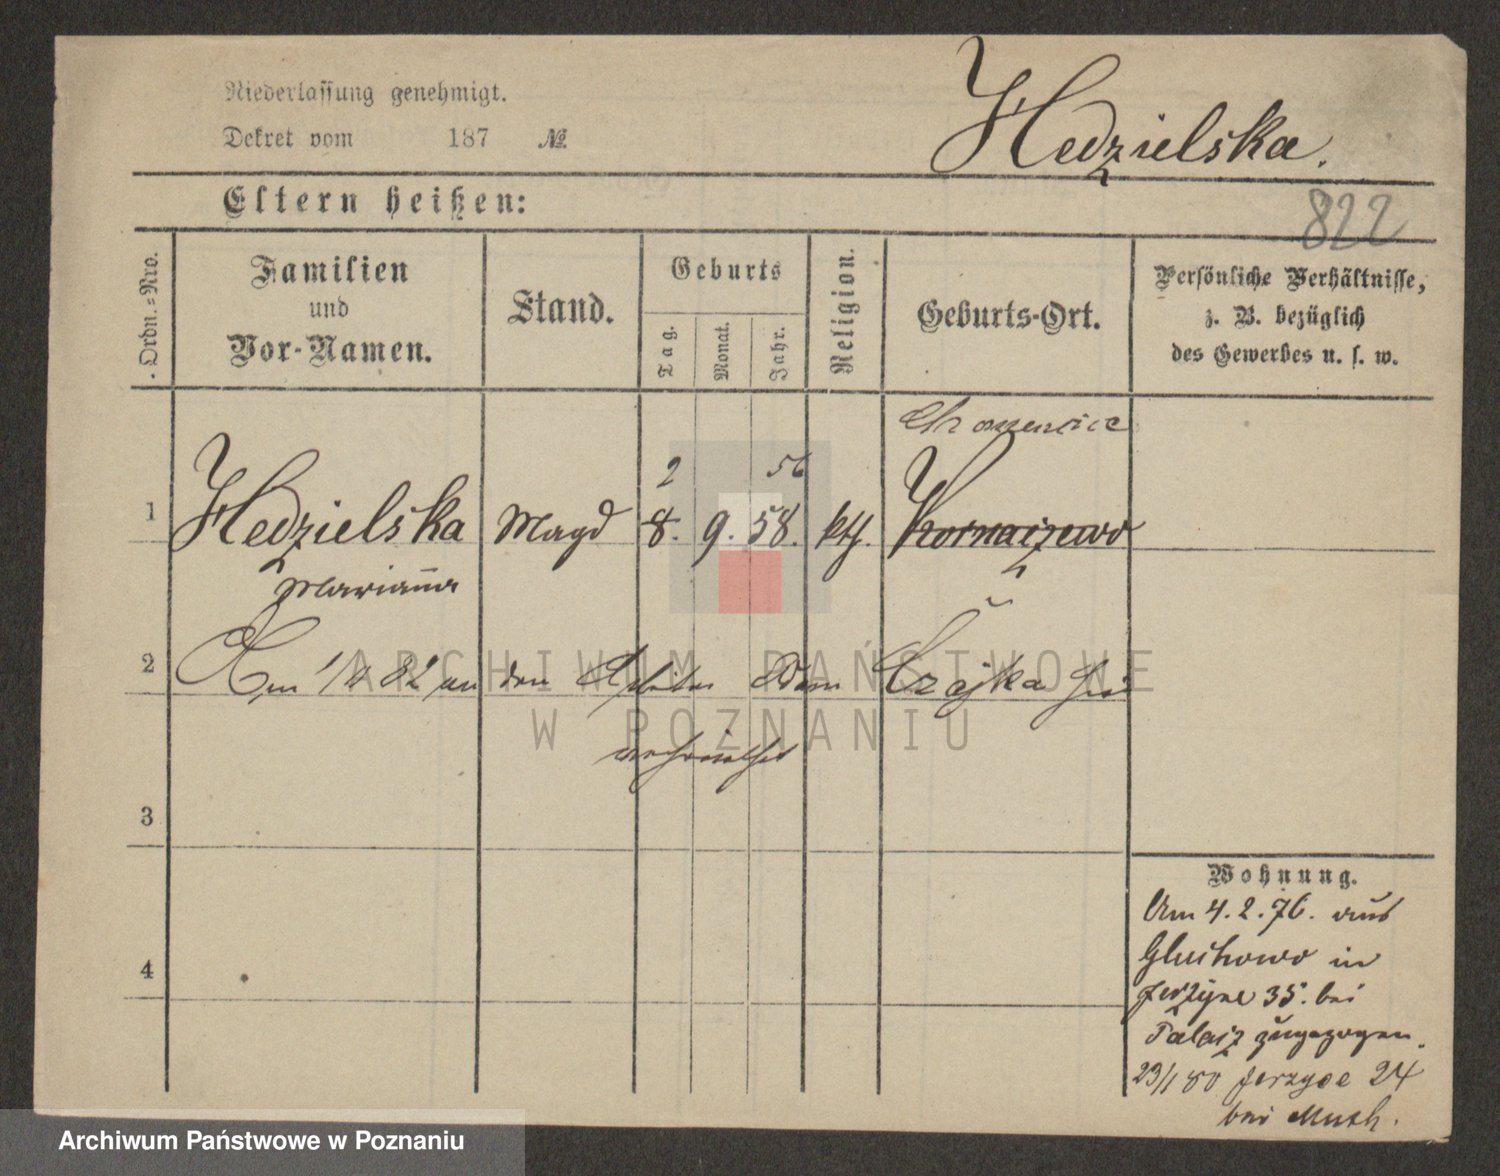 Niederlassung genehmigt.
Dekret vom 187 №
Hedzielska.
Eltern heißen:
822
Ordn.=Nro.
Familien
und
Vor-Namen.
Stand.
Geburts
Tag.
Monat.
Jahr.
Religion.
Geburts-Ort.
Persönliche Verhältnisse,
z. B. bezüglich
des Gewerbes u. s. w.
2 56
1 Hedzielska Magd 8. 9. 58. kth.
Marianna
2 Am an den Arbeiter Adam Czajka hier
verheirathet
3
4
Wohnung.
Am 4. 2. 76. aus
Gluchowo in
Jerzyce 35. bei
Palacz zugezogen.
23/1 80 Jerzyce 24
bei Muth.
ARCHIWUM PAŃSTWOWE
W POZNANIU
Archiwum Państwowe w Poznaniu